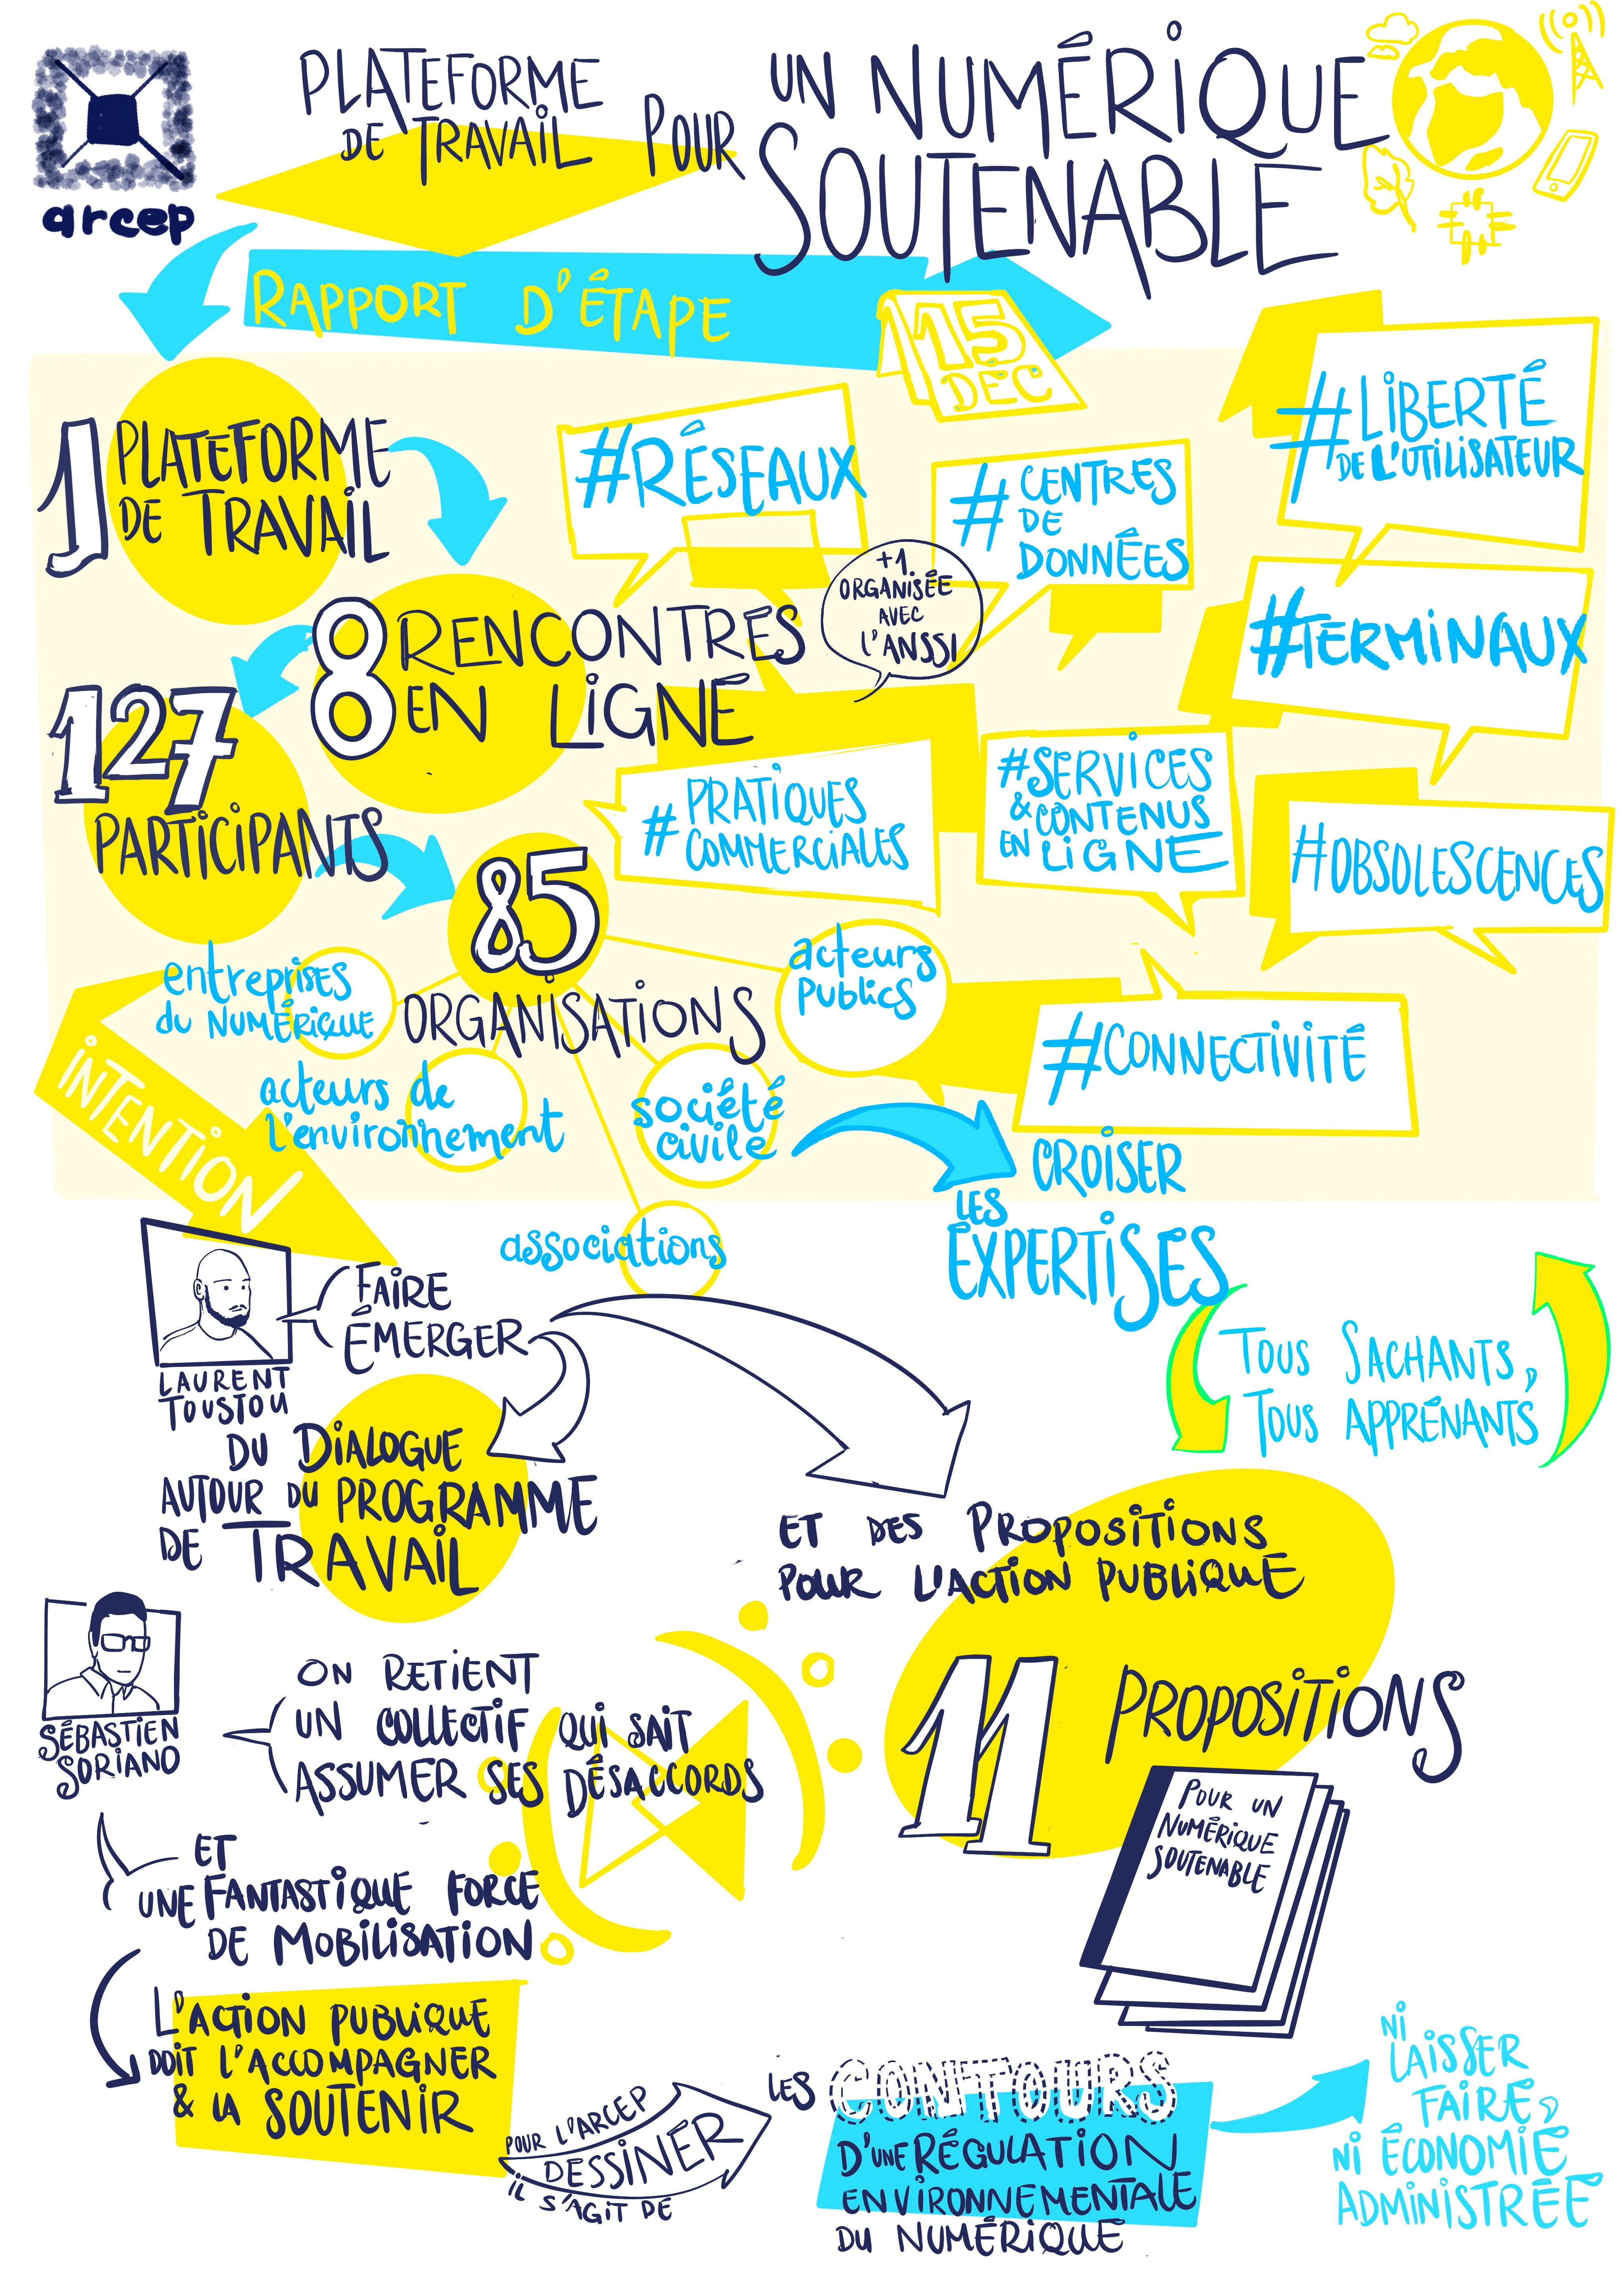 arcep
PLATEFORME
DE TRAVAIL
POUR
UN NUMÉRIQUE
SOUTENABLE
RAPPORT D'ÉTAPE
15
DÉC
1 PLATEFORME
DE TRAVAIL
#RÉSEAUX
# CENTRES
DE
DONNÉES
#LIBERTÉ
DE L'UTILISATEUR
8 RENCONTRES
EN LIGNE
+1
ORGANISÉE
AVEC
L'ANSSI
#TERMINAUX
127
PARTICIPANTS
# PRATIQUES
COMMERCIALES
#SERVICES
& CONTENUS
EN LIGNE
#OBSOLESCENCES
85
ORGANISATIONS
entreprises
du NUMÉRIQUE
acteurs de
l'environnement
société
civile
acteurs
publics
associations
#CONNECTIVITÉ
CROISER
LES
EXPERTISES
TOUS SACHANTS,
TOUS APPRENANTS
INTENTION
LAURENT
TOUSTOU
FAIRE
ÉMERGER
DU DIALOGUE
AUTOUR DU PROGRAMME
DE TRAVAIL
ET DES PROPOSITIONS
POUR L'ACTION PUBLIQUE
11 PROPOSITIONS
POUR UN
NUMÉRIQUE
SOUTENABLE
SÉBASTIEN
SORIANO
ON RETIENT
UN COLLECTIF QUI SAIT
ASSUMER SES DÉSACCORDS
ET
UNE FANTASTIQUE FORCE
DE MOBILISATION
L'ACTION PUBLIQUE
DOIT L'ACCOMPAGNER
& LA SOUTENIR
POUR L'ARCEP
IL S'AGIT DE
DESSINER
LES CONTOURS
D'UNE RÉGULATION
ENVIRONNEMENTALE
DU NUMÉRIQUE
NI
LAISSER
FAIRE,
NI ÉCONOMIE
ADMINISTRÉE